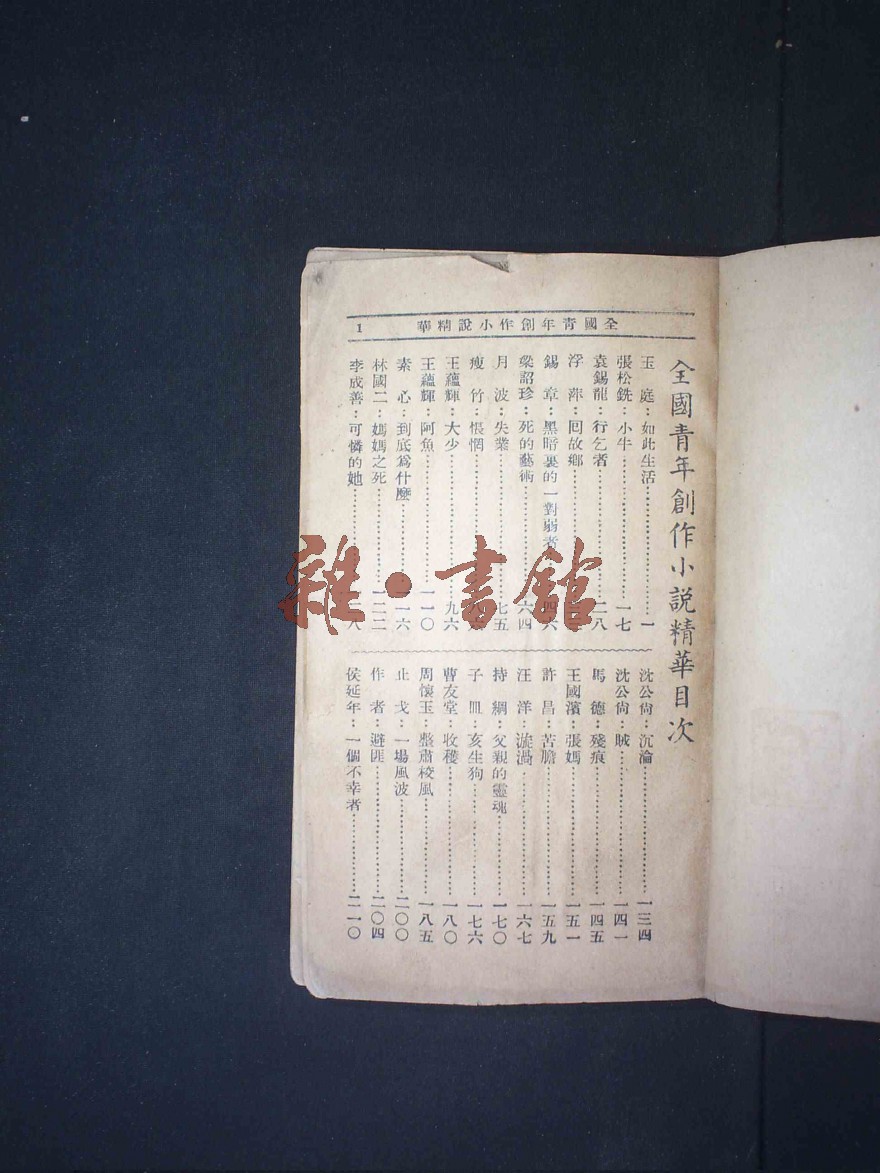 全國青年創作小說精華 1
全國青年創作小說精華目次
玉庭：如此生活……一
張松銑：小牛……一七
袁錫龍：行乞者……二八
浮萍：囘故鄉……
錫章：黑暗裏的一對弱者……四六
梁詔珍：死的藝術……六四
月波：失業……七五
瘦竹：悵惘……
王蘊輝：大少……九六
王蘊輝：阿魚……一一〇
素心：到底爲什麼……一一六
林國二：媽媽之死……一二二
李成善：可憐的她……二八
沈公尙：沉淪……一三四
沈公尙：賊……一四一
馬德：殘痕……一四五
王國濱：張媽……一五一
許昌：苦膽……一五九
汪洋：漩渦……一六七
持綱：父親的靈魂……一七〇
子皿：亥生狗……一七六
曹友堂：收穫……一八〇
周懷玉：整肅校風……一八五
止戈：一場風波……二〇〇
作者：避匪……二〇四
侯延年：一個不幸者……二一〇
雜·書館